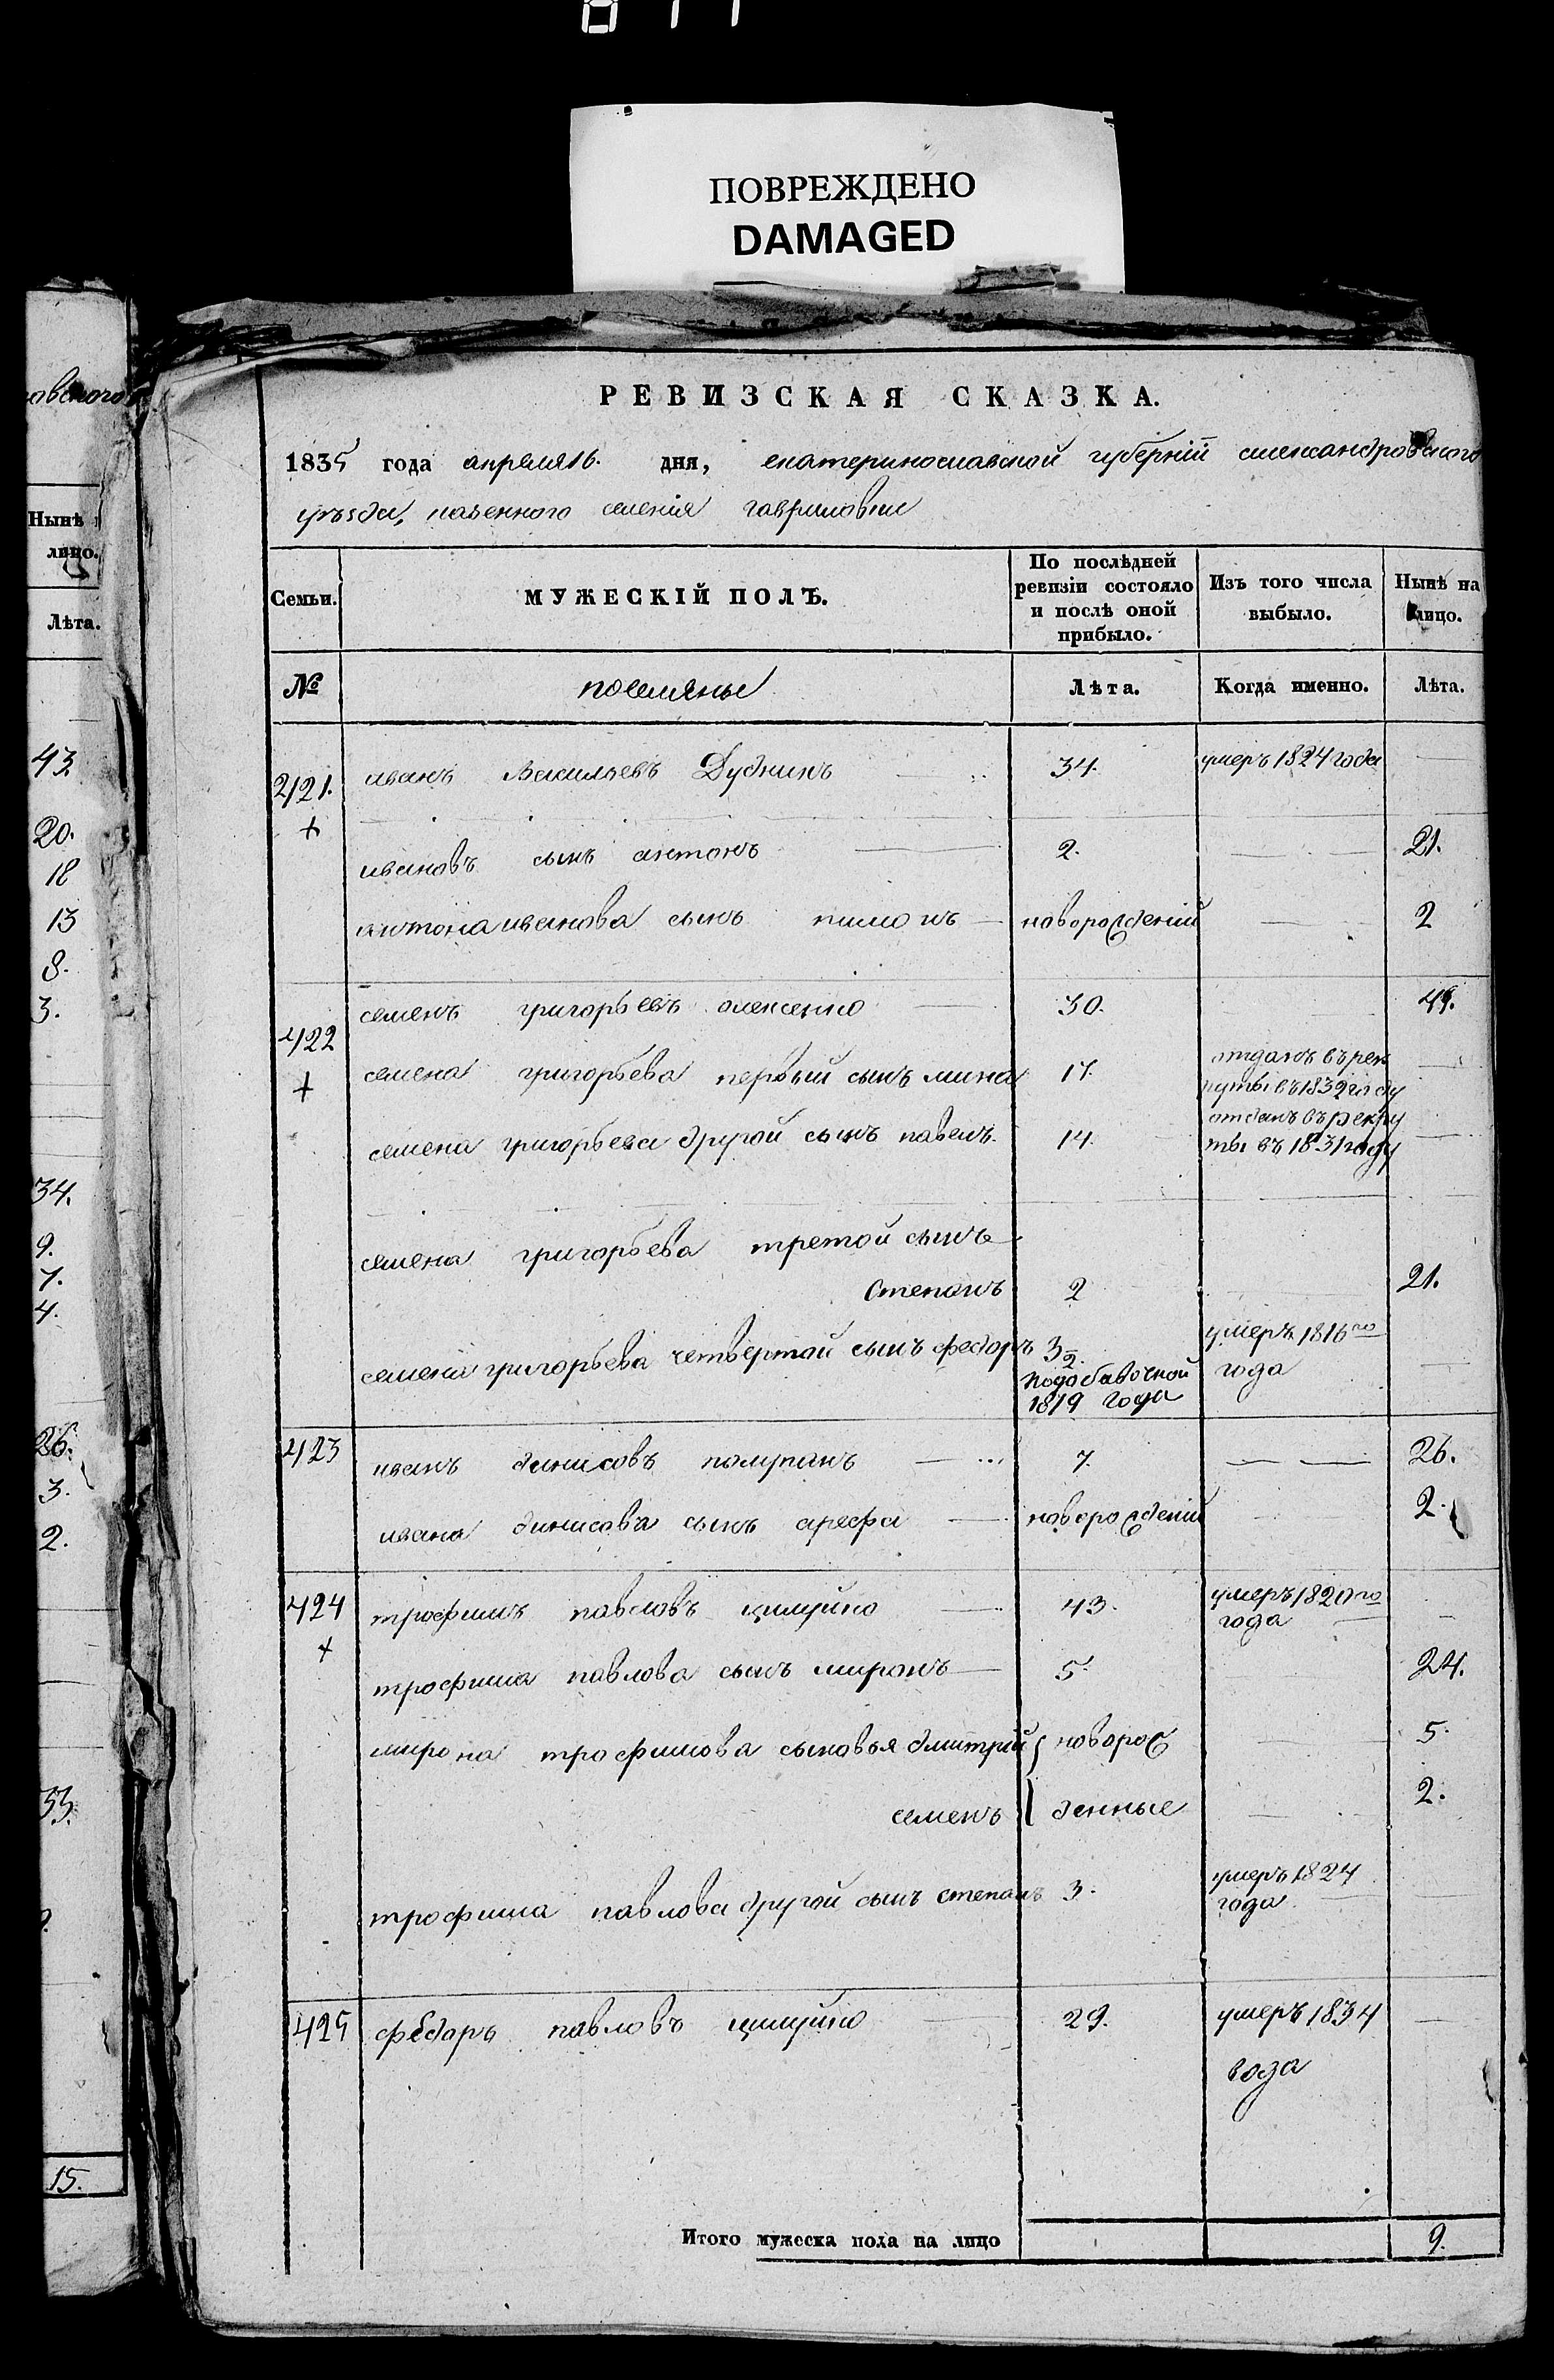 ПОВРЕЖДЕНО
DAMAGED
овского
Нынѣ
лицо.
Лѣта.
43
20.
18
13
8.
3.
34.
9.
7.
4.
26.
3.
2.
33.
15.
РЕВИЗСКАЯ СКАЗКА.
1835 года апреля 16. дня, екатеринославской губерніи александровского
уѣзда, казенного селенія гавриловки
Семьи.
МУЖЕСКІЙ ПОЛЪ.
По послѣдней ревизіи состояло и послѣ оной прибыло.
Изъ того числа выбыло.
Нынѣ на лицо.
№ поселяне Лѣта. Когда именно. Лѣта.
421. иванъ Васильевъ Дудникъ 34. умеръ 1824 года
+
ивановъ сынъ антонъ 2. 21.
антона иванова сынъ пимонъ новорожденій 2
422 семенъ григорьевъ алексенко 30. 49.
+
семена григорьева первый сынъ мина 17. отданъ въ рек
руты въ 1832 году
семена григорьева другой сынъ павелъ. 14. отданъ въ рекру
ты въ 1831 году
семена григорьева третой сынъ
Степанъ 2 21.
семена григорьева четвертой сынъ федоръ 3/2. умеръ 1816го
года
по добавочной
1819 года
423 иванъ динисовъ полупанъ 7. 26.
ивана динисова сынъ арефа новорожденій 2.
424 трофимъ павловъ цимуйко 43. умеръ 1820го
года
+
трофима павлова сынъ миронъ 5. 24.
мирона трофимова сыновья дмитрій новорож 5.
семенъ денные 2.
трофима павлова другой сынъ степанъ 3. умеръ 1824
года
425 федоръ павловъ цимуйко 29. умеръ 1834
года
Итого мужеска пола на лицо 9.